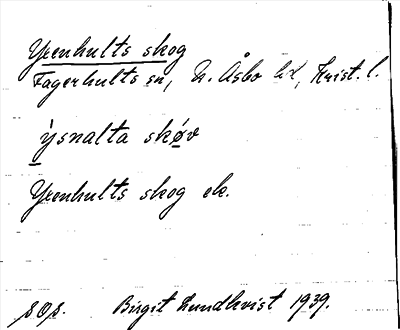 Yxenhults skog
Fagerhults sn, N. Åsbo hd, Krist. l.
ỳsnalta skøv
Yxenhults skog ek.
Birgit Lundkvist 1939.